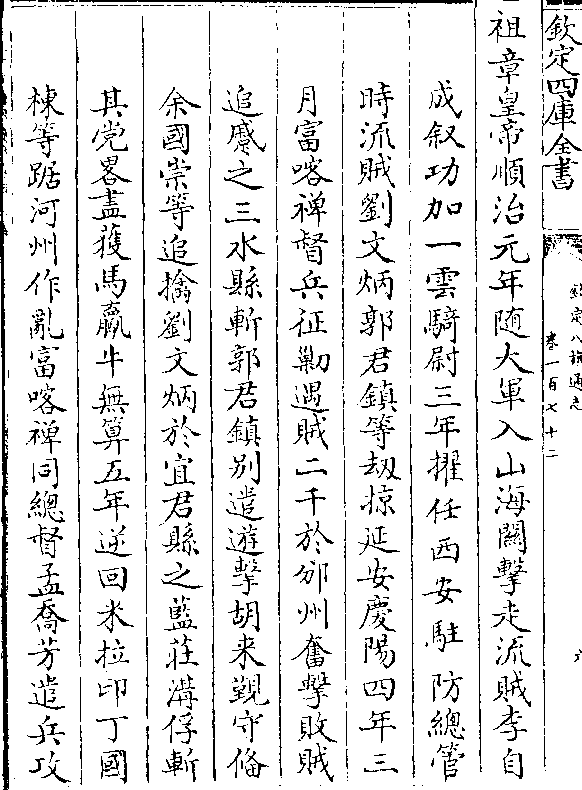 欽定四庫全書
欽定八旗通志
卷一百七十二
六
祖章皇帝順治元年随大軍入山海關擊走流賊李自
成叙功加一雲騎尉三年擢任西安駐防總管
時流賊劉文炳郭君鎮等刼掠延安慶陽四年三
月富喀禅督兵征勦遇賊二千於邠州奮擊敗賊
追蹙之三水縣斬郭君鎮别遣遊擊胡来覲守備
余國崇等追擒劉文炳於宜君縣之藍荘溝俘斬
其党畧盡獲馬驘牛無算五年逆回米拉印丁國
棟等踞河州作亂富喀禅同總督孟喬芳遣兵攻